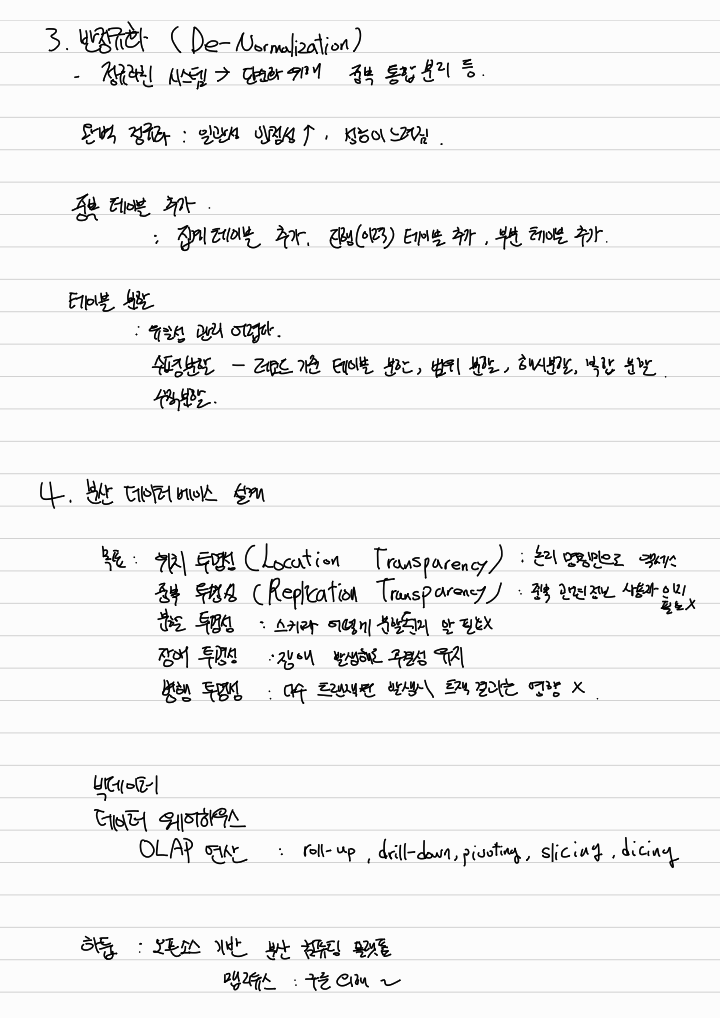 3. 반정규화 (De-Normalization)
- 정규화된 시스템 → 단순화 위해 중복 통합 분리 등.
완벽 정규화 : 일관성 안정성↑, 성능이 느려짐.
중복 테이블 추가.
: 집계 테이블 추가, 진행(이력) 테이블 추가, 부분 테이블 추가.
테이블 분할
: 유일성 관리 어렵다.
수평분할 - 레코드 기준 테이블 분할, 범위 분할, 해시분할, 복합 분할
수직분할.
4. 분산 데이터베이스 설계
목표 : 위치 투명성 (Location Transparency) : 논리 명칭만으로 액세스
중복 투명성 (Replication Transparency) : 중복 관련정보 사용자 인지 필요X
분할 투명성 : 스키마 어떻게 분할된지 알 필요X
장애 투명성 : 장애 발생해도 무결성 유지
병행 투명성 : 다수 트랜잭션 발생시 트랜 결과는 영향 X.
빅데이터
데이터 웨어하우스
OLAP 연산 : roll-up, drill-down, pivoting, slicing, dicing
하둡 : 오픈소스 기반 분산 컴퓨팅 플랫폼
맵리듀스 : 구글 의해 ~